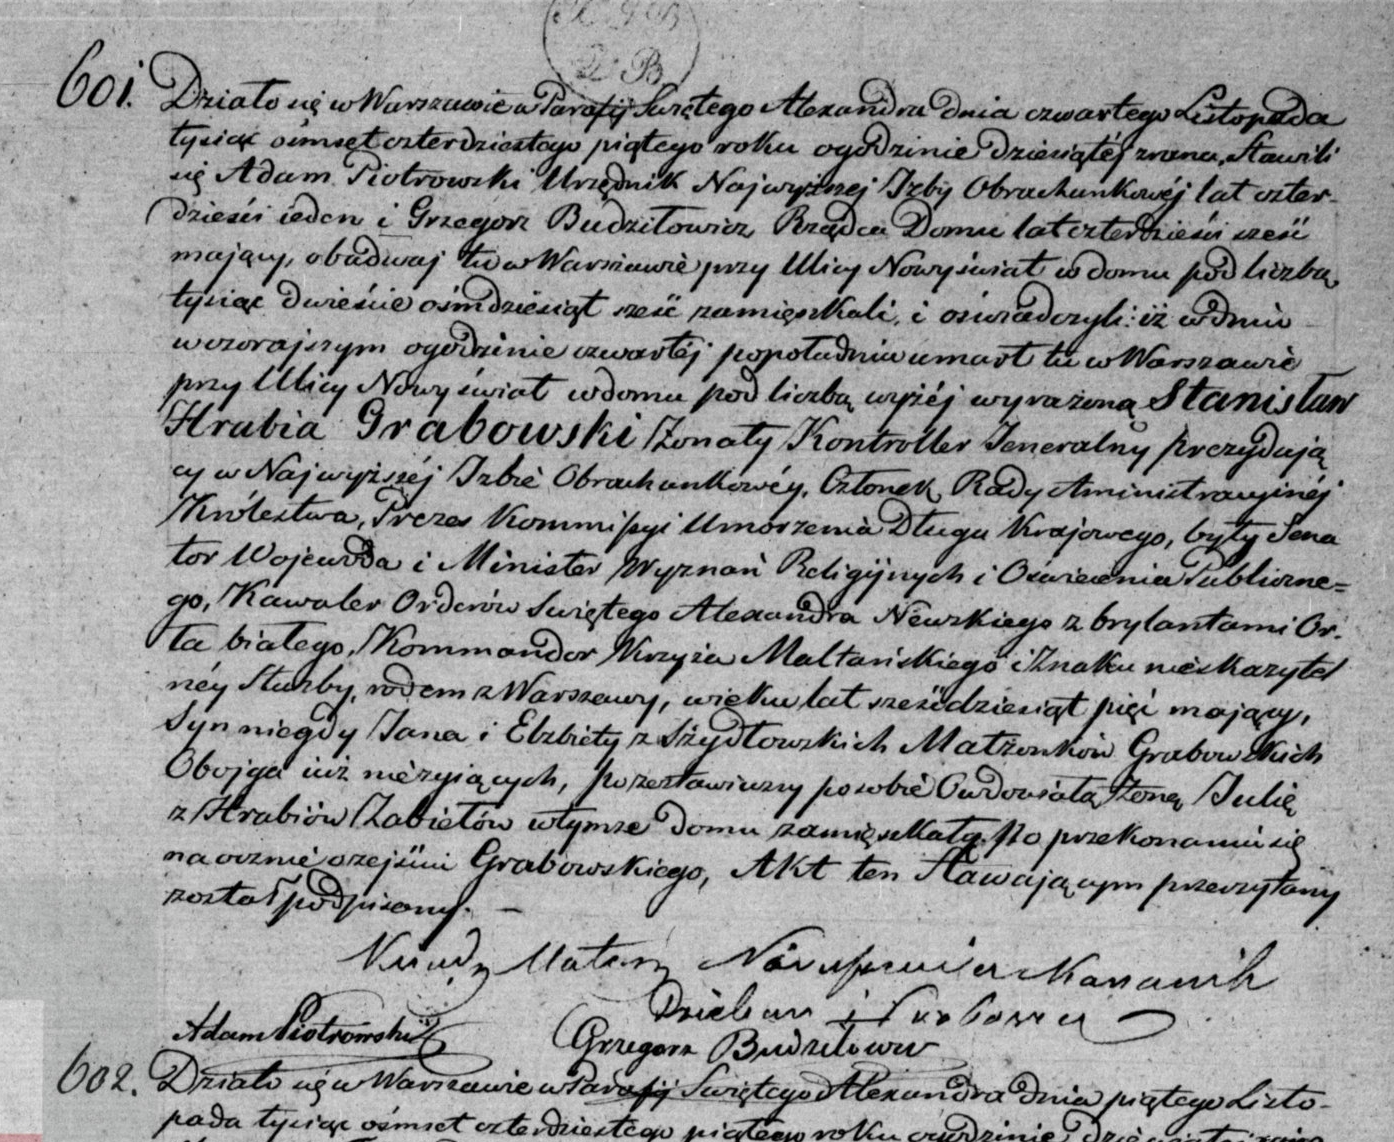 601. Działo się w Warszawie w Parafij Swiętego Alexandra dnia czwartego Listopada
tysiąc ośmset czterdziestego piątego roku ogodzinie dziesiątéj zrana, Stawili
się Adam Piotrowski Urzędnik Najwyższej Izby Obrachunkowéj lat czter-
dzieści ieden i Grzegorz Budziłowicz Rządca Domu lat czterdzieści sześć
mający, obadwaj tu w Warszawie przy Ulicy Nowy świat w domu pod liczbą
tysiąc dwieście ośmdziesiąt sześć zamięszkali, i oświadczyli: iż w dniu
wczorajszym ogodzinie czwartéj popołudniu umarł tu w Warszawie
przy Ulicy Nowy świat w domu pod liczbą wyżéj wyrażoną Stanisław
Hrabia Grabowski Żonaty Kontroller Jeneralny prezydują
cy w Najwyższéj Izbie Obrachunkowéy, Członek Rady Aministracyinéj
Królestwa, Prezes Kommissyi Umorzenia Długu Krajowego, były Sena
tor Wojewoda i Minister Wyznań Religijnych i Oświecenia Publiczne=
go, Kawaler Orderów Swiętego Alexandra Newskiego z brylantami Or-
ła białego, Kommandor Krzyża Maltańskiego i Znaku nieskazytel
néy Służby, rodem z Warszawy, wieku lat sześćdziesiąt pięć mający,
Syn niegdy Jana i Elżbiety z Szydłowskich Małżonków Grabowskich
Obojga iuż nieżyiących, pozostawiwszy po sobie Owdowiałą Żonę Julię
z Hrabiów Zabiełów w tymże domu zamięszkałą. Po przekonaniu się
naocznie o zejściu Grabowskiego, Akt ten Stawającym przeczytany
został podpisany. —
Xiądz Kanonik
Dziekan i
Adam Piotrowski Grzegorz Budziłowicz
602. Działo się w Warszawie w Parafij Swiętego Alexandra dnia piątego Listo-
pada tysiąc ośmset czterdziestego piątego roku ogodzinie